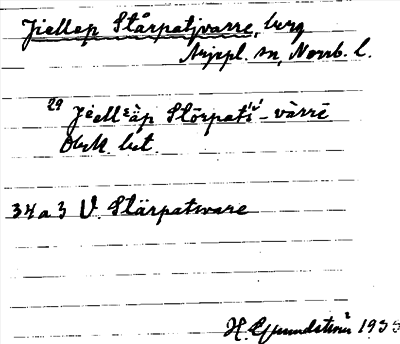 Jiellep Stårpatjvarre, berg
Arjepl. sn, Norrb. l.
29 Jiellᵋäp Stōrpats̀-vàrrē
Obek. bet.
34 a 3 V. Stärpatvare
H. 1935